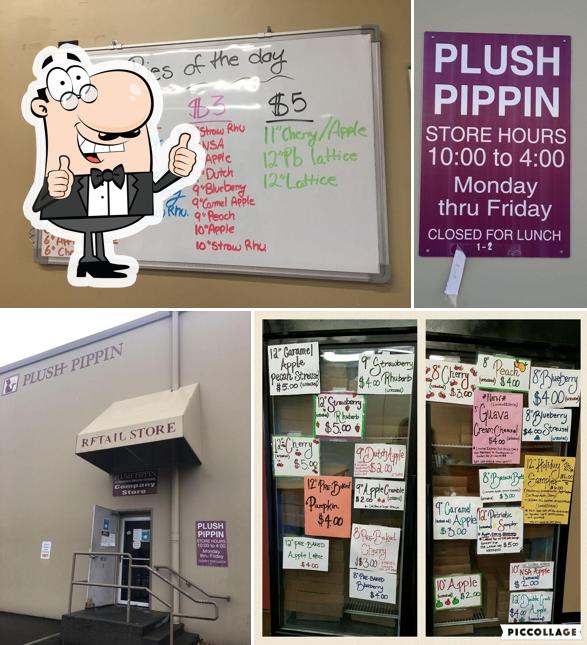 Pies of the day
$3
$5
Straw Rhu
NSA
Apple
Dutch
9" Blueberry
9" Camel Apple
9" Peach
10" Apple
10" Straw Rhu
11" Cherry/Apple
12" Pb lattice
12" Lattice
Rhu.
PLUSH
PIPPIN
STORE HOURS
10:00 to 4:00
Monday
thru Friday
CLOSED FOR LUNCH
1-2
PLUSH PIPPIN
RETAIL STORE
PLUSH PIPPIN
Company
Store
PLUSH
PIPPIN
STORE HOURS
10:00 to 4:00
Monday
thru Friday
12" Caramel
Apple
pecan Streusel
$5.00
9" Strawberry
Rhubarb
$4.00
12" Strawberry
Rhubarb
$5.00
12" Cherry
$5.00
9" Dutch Apple
$2.00
12" Pre-Baked
Pumpkin
$4.00
9" Apple Crumble
12" Pre-Baked
Apple Lattice
$4.00
8" Pre-Baked
Cherry
$3.00
8" Pre-Baked
Blueberry
$4.00
8" Cherry
$3.00
8" Peach
$4.00
8" Blueberry
$4.00
Guava
Cream Cheese
$4.00
8" Blueberry
Streusel
12" Holiday
Sampler
8" Brown Butter
$3.00
9" Caramel
Apple
$3.00
12" Patriotic
Sampler
$5.00
10" Apple
$2.00
10" NSA Apple
$2.00
12" Double Crust
Apple
$4.00
PICCOLLAGE